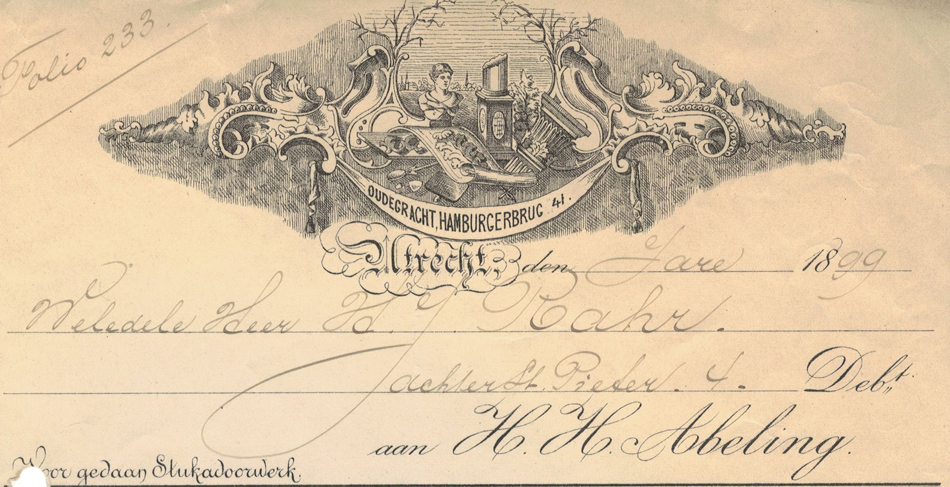 Folio 233.
OUDEGRACHT, HAMBURGERBRUG 41.
Utrecht, den Jare 1899
Weledele Heer H. J. Rahr.
achter St. Pieter. 4. Debt.
aan H. H. Abeling.
Voor gedaan Stukadoorwerk.